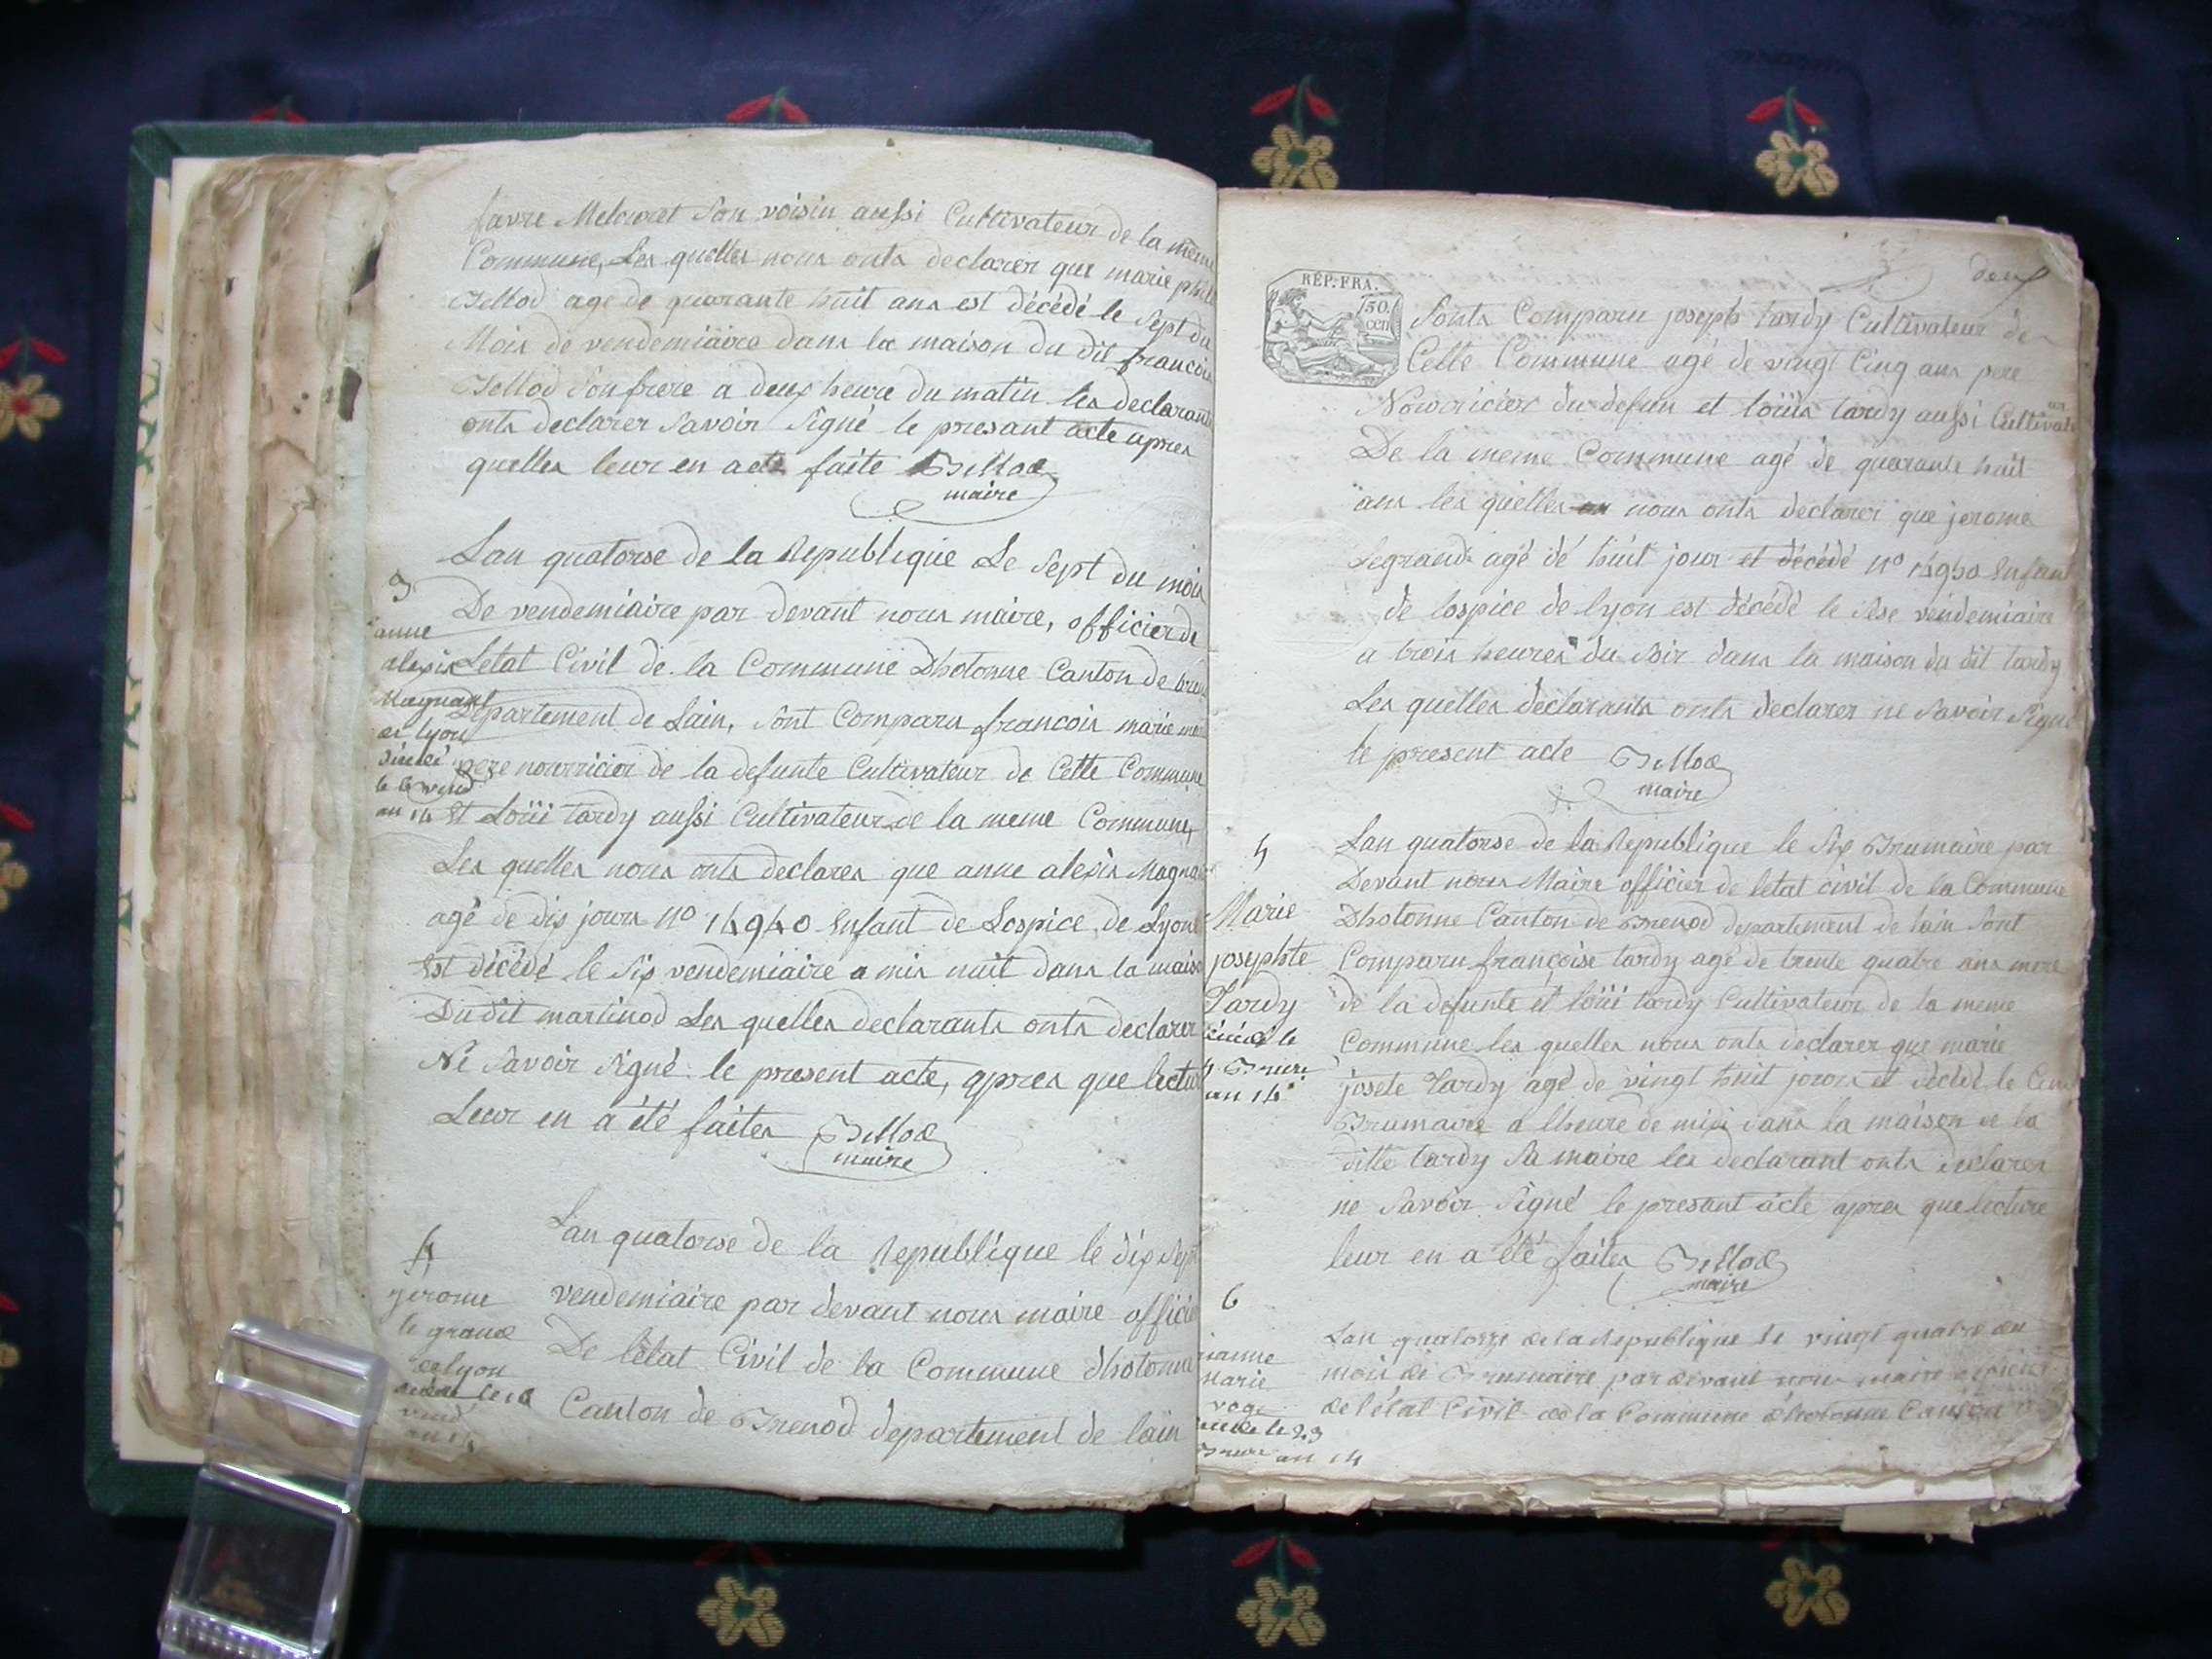 favre Melcuret son voisin aussi Cultivateur de la même
Commune, Les quelles nous onts declarer que marie
Billod age de quarante huit ans est décédé le Sept du
Mois de vendemiaire dans la maison du dit francois
Billod Son frere a deux heure du matin les declarants
onts declarer Savoir Signé le presant acte apres
quelles leur en acte faite Billod
maire
Lan quatorse de la Republique Le Sept du mois
3
De vendemiaire par devant nous maire, officier de
anne
alexis
Letat Civil de la Commune Dhotonne Canton de
Magnant
Departement de Lain, Sont Comparu francois marie
de lyon
décédé
pere nourricier de la defunte Cultivateur de Cette Commune
le 6 vend
an 14
Et Loüi tardy aussi Cultivateur de la meme Commune,
Les quelles nous onts declarer que anne alexis
agé de dix jours no 14940 Enfant de Lospice de Lyon
Est décédé le Six vendemiaire a mis nuit dans la maison
Du dit martinod Les quelles declarants onts declarer
Ne Savoir Signé le present acte, apres que lecture
Leur en a été faites Billod
maire
4
Lan quatorse de la Republique le dix Sept
jerome
vendemiaire par devant nous maire officier
le grand
De létat Civil de la Commune dhotonne
de lyon
décédé le 16
Canton de Brenod departement de lain
vend
an 14
deux
RÉP. FRA.
50
cen
Sonts Comparu joseph tardy Cultivateur de
Cette Commune agé de vingt Cinq ans pere
Nouricier du defun et loüis tardy aussi Cultivateur
De la meme Commune agé de quarante huit
ans les quelles nous onts declarer que jerome
Legrand agé dé huit jour et décédé no 14950 Enfant
de lospice de lyon est décédé le Sese vendemiaire
a trois heures du Soir dans la maison du dit tardy
Les quelles declarants onts declarer ne Savoir Signé
le present acte Billod
maire
5
Lan quatorse de la Republique le Six Brumaire par
Devant nous Maire officier de letat civil de la Commune
Marie
Dhotonne Canton de Brenod departement de lain Sont
josephte
Comparu françoise tardy agé de trente quatre ans mere
Tardy
de la defunte et loüi tardy Cultivateur de la meme
décédé le
Commune les quelles nous onts declarer que marie
an 14
josete Tardy agé de vingt huit jours et décédé le Cinq
Brumaire a lheure de midi dans la maison de la
ditte tardy Sa maire les declarant onts declarer
ne Savoir Signé le presant acte apres que lecture
leur en a été faites Billod
maire
6
Lan quatorze de la Republique le vingt quatre du
Marie
mois de Brumaire par devant nous maire officier
de létat Civil de la Commune dhotonne Canton
le 23
an 14